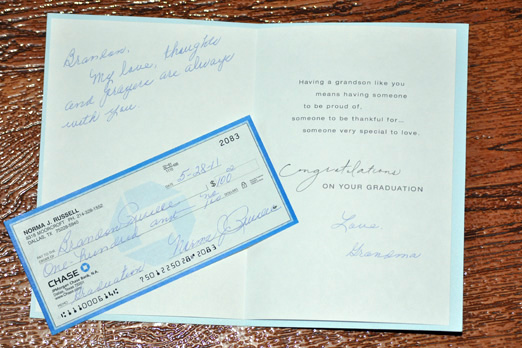 Brandon,
My love, thoughts
and prayers are always
with you
Having a grandson like you
means having someone
to be proud of,
someone to be thankful for...
someone very special to love.
Congratulations
ON YOUR GRADUATION
Love
Grandma
2083
5-28-11
NORMA J. RUSSELL
DALLAS, TX
Brandon
$ 100
One hundred and
CHASE
JPMorgan Chase Bank, N.A.
www.Chase.com
Graduation
Norma J.
2083